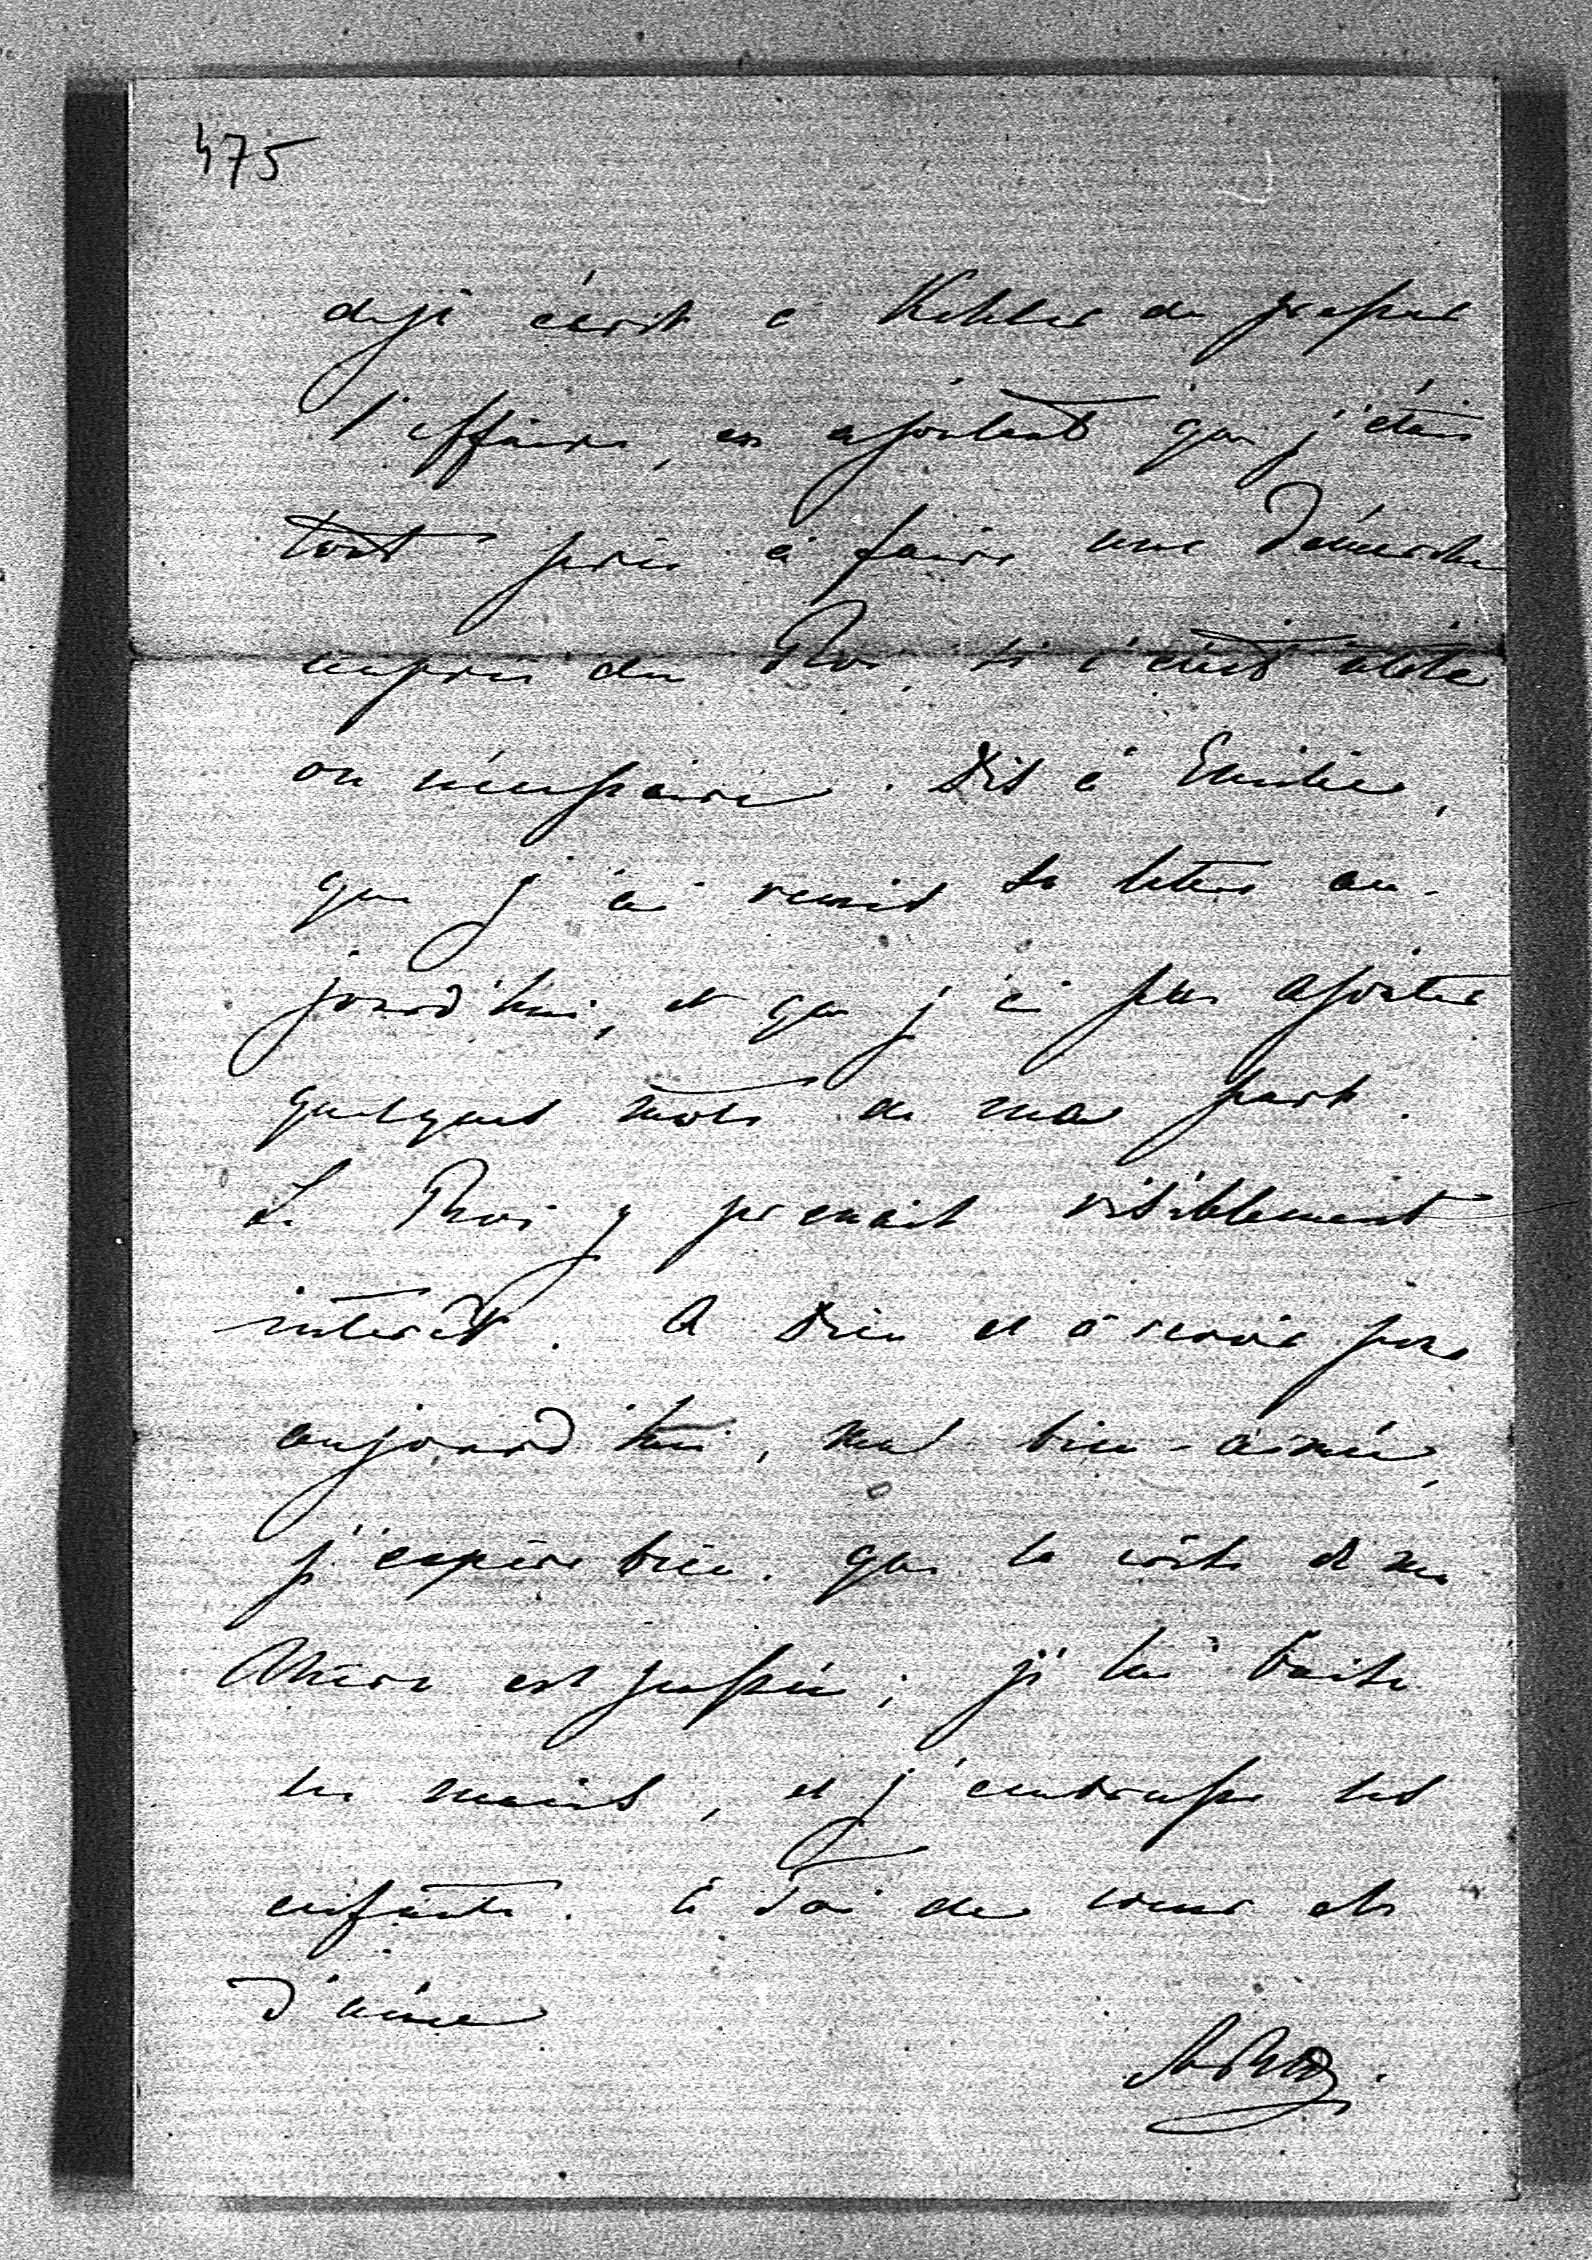 475
deja écrit à Kohler de presser
l'affaire, en ajoutant que j'étais
tout près à faire une démarche
auprès du Roi, si c'était utile
ou nécessaire. Dis à Emilie,
que j'ai remis sa lettre au-
jourd'hui, et que j'ai pu ajouter
quelques mots de ma part.
Le Roi y prenait visiblement
interêt. A Dieu et à revoir pour
aujourd'hui, ma bien-aimée,
j'espère bien que la toux de ma
Mère est passée; je lui baise
les mains, et j'embrasse les
enfants. à Toi de coeur et
d'âme